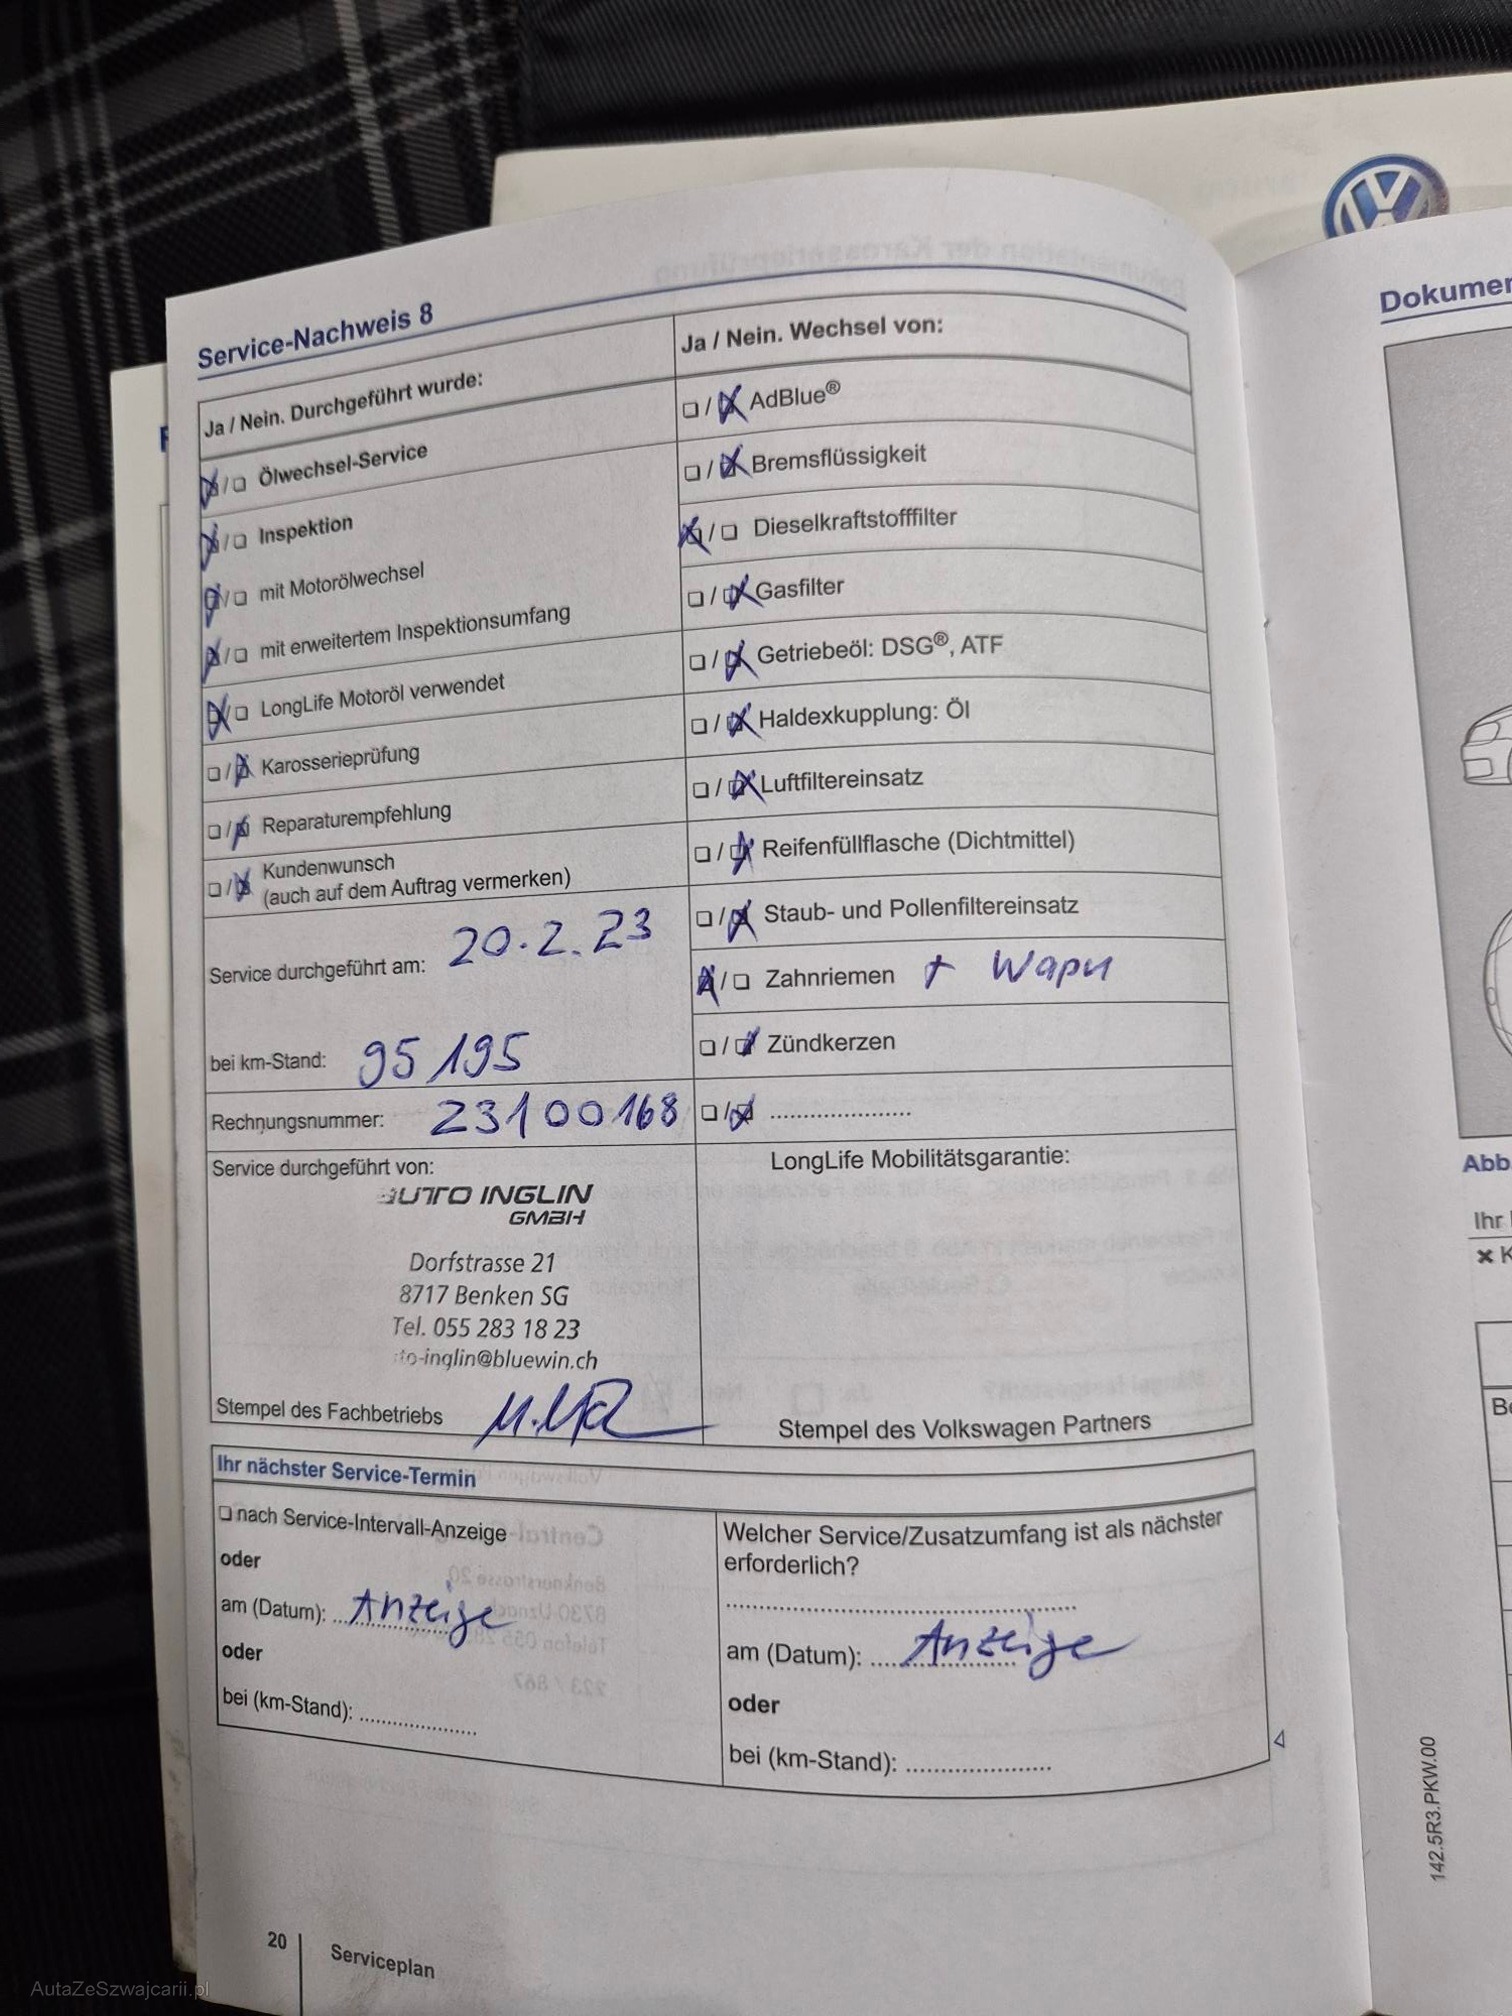 Service-Nachweis 8
Ja / Nein. Durchgeführt wurde:
Ölwechsel-Service
Inspektion
mit Motorölwechsel
mit erweitertem Inspektionsumfang
LongLife Motoröl verwendet
Karosserieprüfung
Reparaturempfehlung
Kundenwunsch
(auch auf dem Auftrag vermerken)
Service durchgeführt am: 20.2.23
bei km-Stand: 95195
Rechnungsnummer: 23100168
Service durchgeführt von:
AUTO INGLIN
GMBH
Dorfstrasse 21
8717 Benken SG
Tel. 055 283 18 23
to-inglin@bluewin.ch
Stempel des Fachbetriebs
Ja / Nein. Wechsel von:
AdBlue®
Bremsflüssigkeit
Dieselkraftstofffilter
Gasfilter
Getriebeöl: DSG®, ATF
Haldexkupplung: Öl
Luftfiltereinsatz
Reifenfüllflasche (Dichtmittel)
Staub- und Pollenfiltereinsatz
Zahnriemen + Wapu
Zündkerzen
LongLife Mobilitätsgarantie:
Stempel des Volkswagen Partners
Ihr nächster Service-Termin
nach Service-Intervall-Anzeige
oder
am (Datum): Anzeige
oder
bei (km-Stand):
Welcher Service/Zusatzumfang ist als nächster
erforderlich?
am (Datum): Anzeige
oder
bei (km-Stand):
20 Serviceplan
Dokumen
Abb
Ihr
142.5R3.PKW.00
AutaZeSzwajcarii.pl